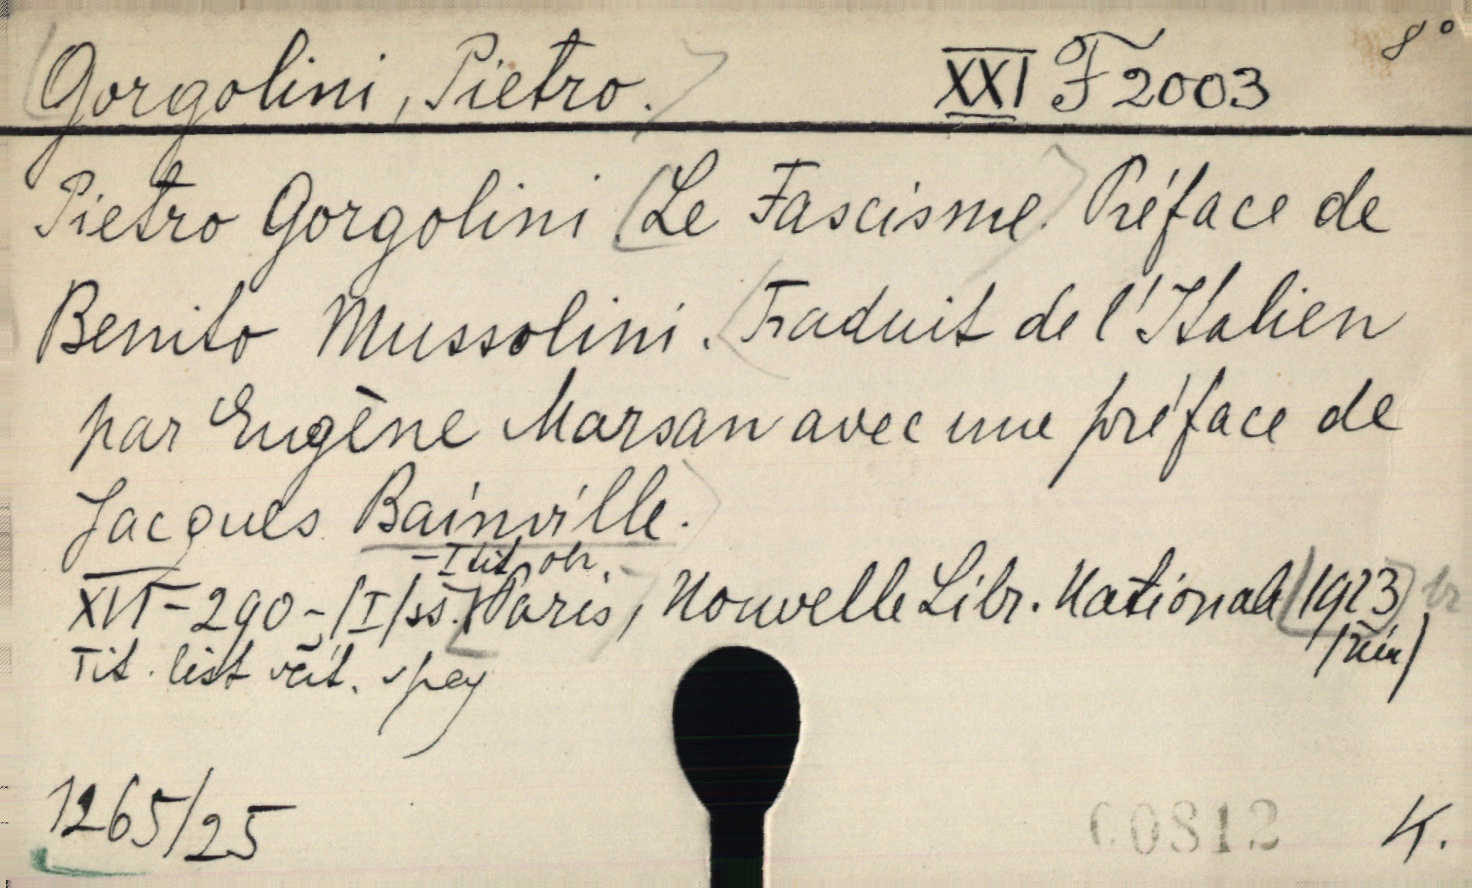 Gorgolini, Pietro. XXI F 2003 8°
Pietro Gorgolini Le Fascisme. Préface de
Benito Mussolini. Traduit de l'Italien
par Eugène Marsan avec une préface de
Jacques Bainville.
-I tit. obr.
XVI-290-/I/ss. Paris, Nouvelle Libr. Nationale 1923
Tit. list
1265/25 60812 K.